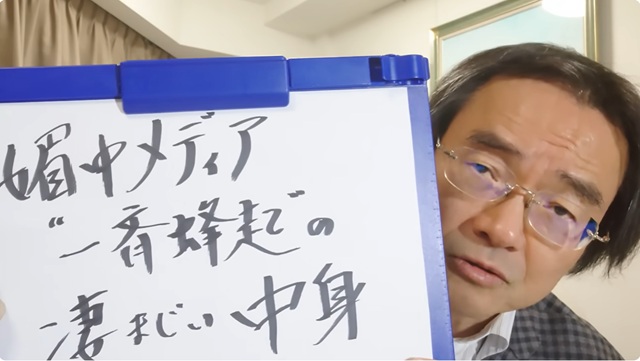 媚中メディア
“一斉蜂起”の
凄まじい中身